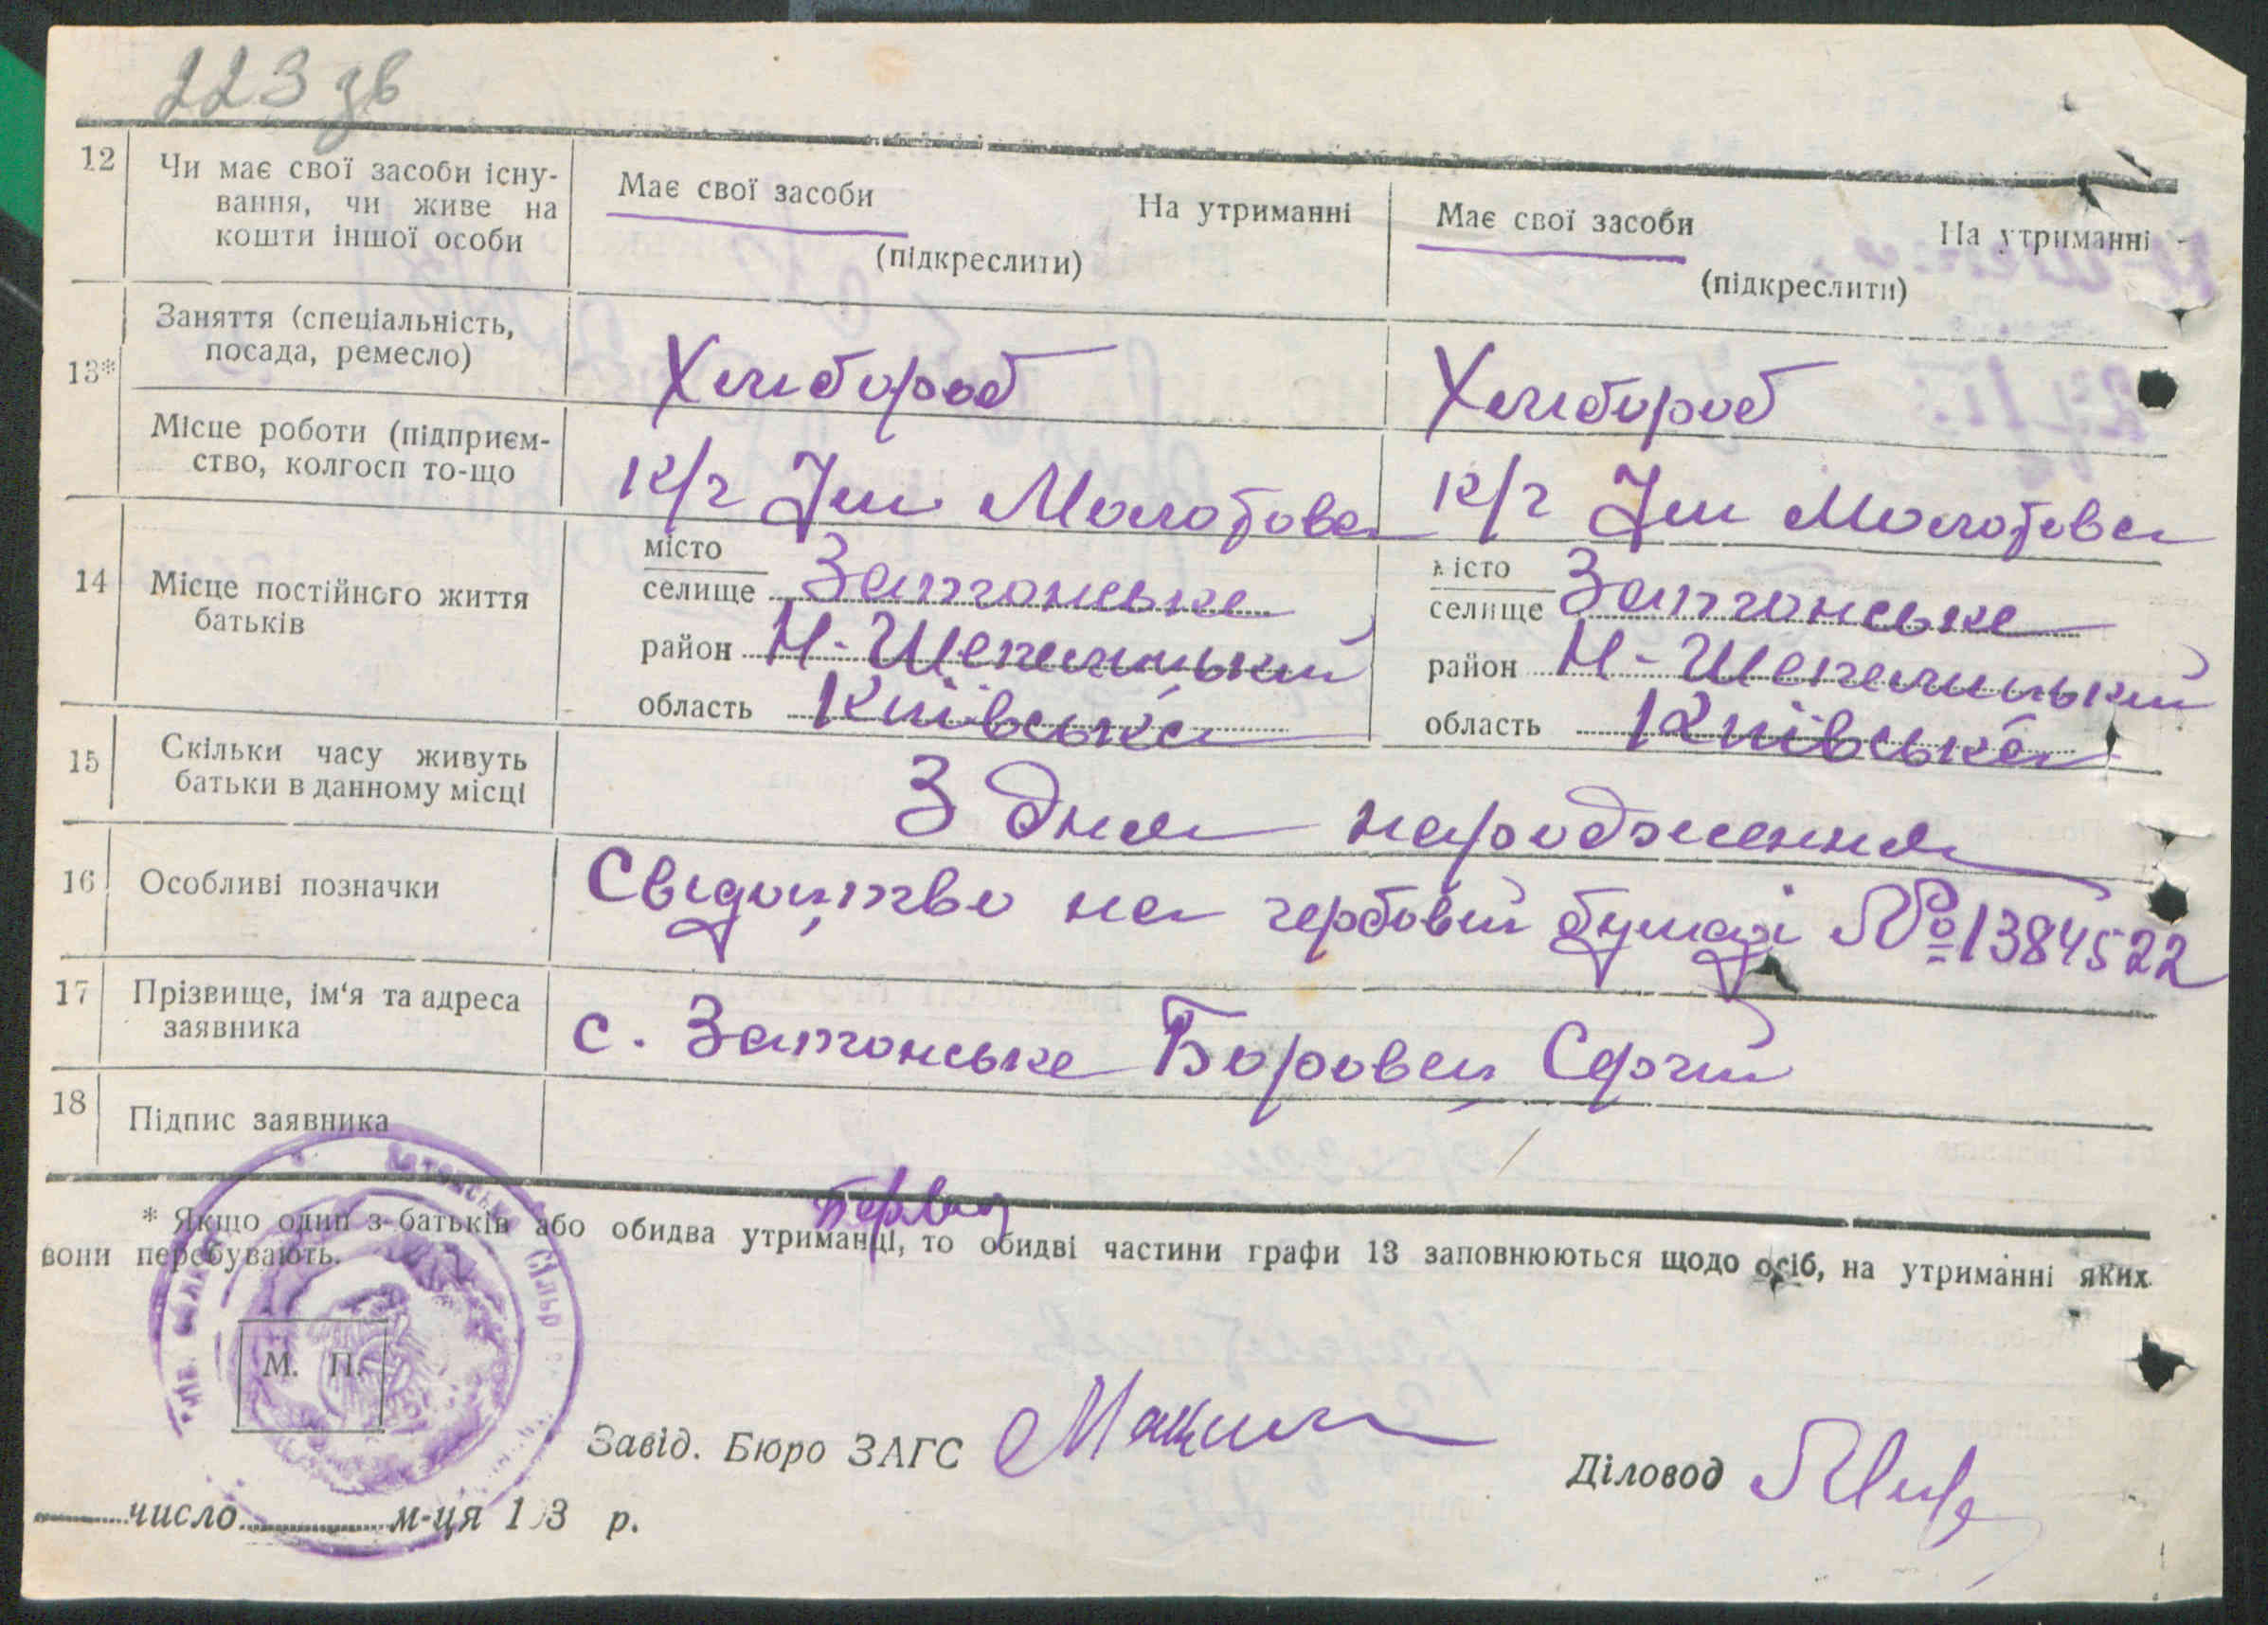 223 зв
12 Чи має свої засоби існу- Має свої засоби На утриманні Має свої засоби На утриманні
вання, чи живе на
кошти іншої особи (підкреслити) (підкреслити)
13* Заняття (спеціальність, Хлибороб Хлибороб
посада, ремесло)
Місце роботи (підприєм- к/г Ім Молотова к/г Ім Молотова
ство, колгосп то-що
14 Місце постійного життя місто місто
батьків селище Затонське селище Затонське
район Н-Шепелицький район Н-Шепелицький
область Київська область Київська
15 Скільки часу живуть З дня народження
батьки в данному місці
16 Особливі позначки Свідоцтво на гербовій бумазі № 1384522
17 Прізвище, ім'я та адреса с. Затонське Боровець Сергій
заявника
18 Підпис заявника
* Якщо один з батьків або обидва утриманці, то обидві частини графи 13 заповнюються щодо осіб, на утриманні яких
вони перебувають.
М. П.
Завід. Бюро ЗАГС
Діловод
число м-ця 193 р.